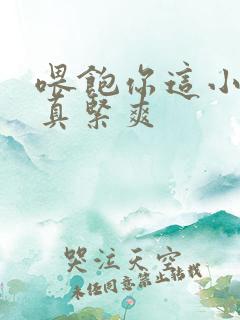 喂飽你這小
真緊爽
哭泣天空
未经同意禁止转载